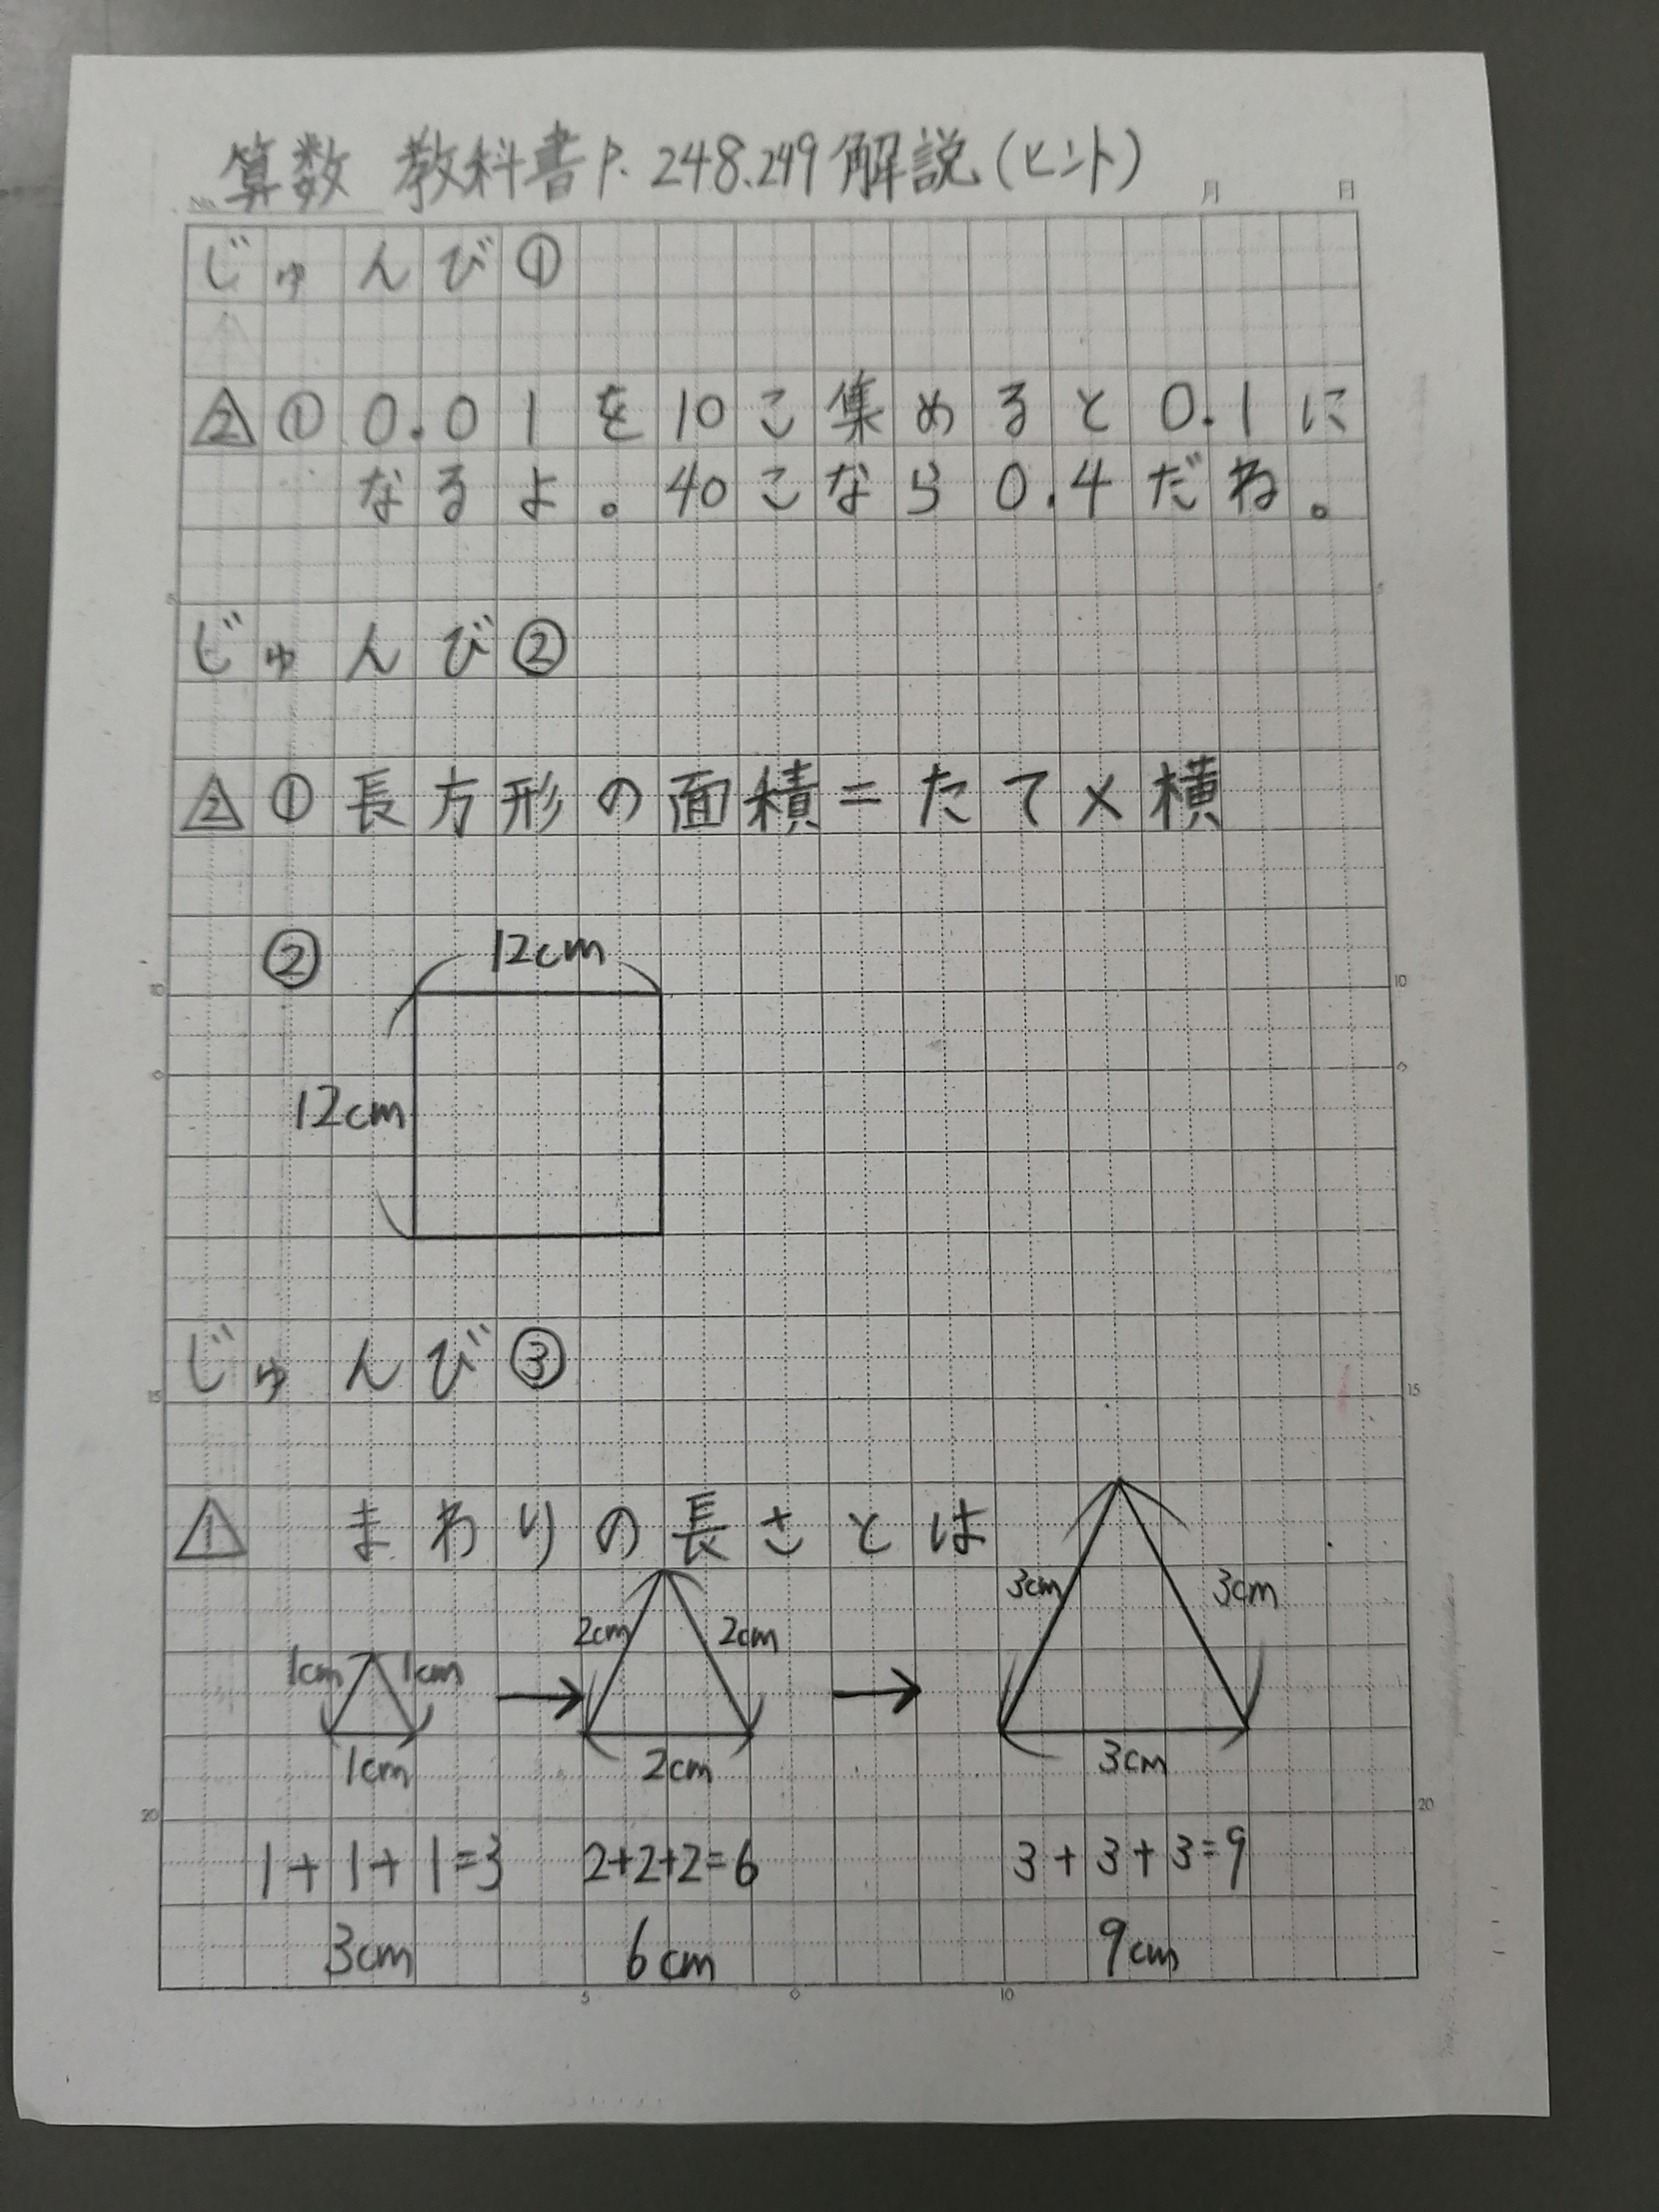 算数 教科書P.248.249解説(ヒント)
No. 月 日
じゅんび①
△2 ① 0.01を10こ集めると0.1に
なるよ。40こなら0.4だね。
5
じゅんび②
△2 ① 長方形の面積=たて×横
② 12cm
10 10
12cm
じゅんび③
15 15
△1 まわりの長さとは
3cm 3cm
2cm 2cm
1cm 1cm → →
1cm 2cm 3cm
20 20
1+1+1=3 2+2+2=6 3+3+3=9
3cm 6cm 9cm
5 0 10